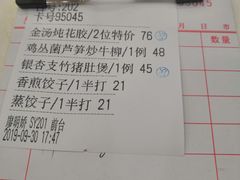 卡号95045
金汤炖花胶/2位特价 76
鸡丛菌芦笋炒牛柳/1例 48
银杏支竹猪肚煲/1例 45
香煎饺子/1半打 21
蒸饺子/1半打 21
SY201 前台
2019-09-30 17:47